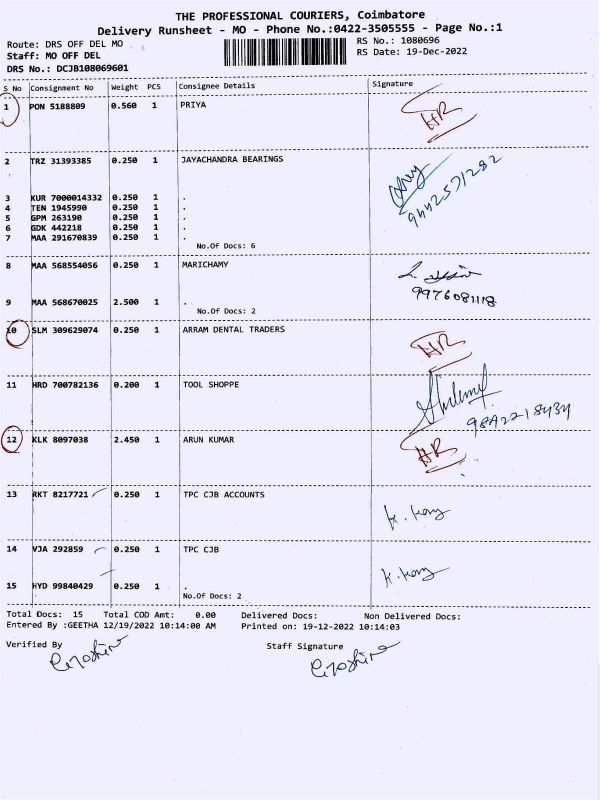 THE PROFESSIONAL COURIERS, Coimbatore
Delivery Runsheet - MO - Phone No.:0422-3505555 - Page No.:1
Route: DRS OFF DEL MO RS No.: 1080696
Staff: MO OFF DEL RS Date: 19-Dec-2022
DRS No.: DCJB108069601
S No Consignment No Weight PCS Consignee Details Signature
1 PON 5188809 0.560 1 PRIYA
HR
2 TRZ 31393385 0.250 1 JAYACHANDRA BEARINGS
9442571282
3 KUR 7000014332 0.250 1 .
4 TEN 1945990 0.250 1 .
5 GPM 263190 0.250 1 .
6 GDK 442218 0.250 1 .
7 MAA 291670839 0.250 1 .
No.Of Docs: 6
8 MAA 568554056 0.250 1 MARICHAMY
9976081118
9 MAA 568670025 2.500 1 .
No.Of Docs: 2
10 SLM 309629074 0.250 1 ARRAM DENTAL TRADERS
HR
11 HRD 700782136 0.200 1 TOOL SHOPPE
12 KLK 8097038 2.450 1 ARUN KUMAR
HR
13 RKT 8217721 0.250 1 TPC CJB ACCOUNTS
14 VJA 292859 0.250 1 TPC CJB
15 HYD 99840429 0.250 1 .
No.Of Docs: 2
Total Docs: 15 Total COD Amt: 0.00 Delivered Docs: Non Delivered Docs:
Entered By :GEETHA 12/19/2022 10:14:00 AM Printed on: 19-12-2022 10:14:03
Verified By Staff Signature